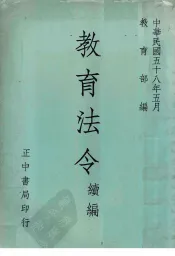 中華民國五十八年五月
教育部編
教育法令
續編
正中書局印行